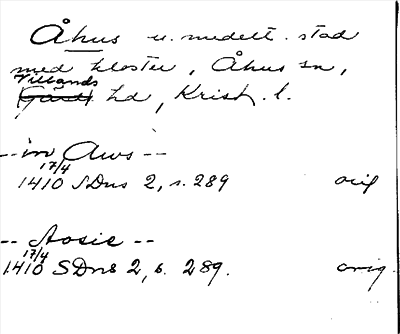 Åhus u. medelt. stad
med kloster, Åhus sn,
Villands
Gärds hd, Krist. l.
-- in Aws --
17/4
1410 SDns 2, s. 289 orig
-- Aosie --
17/4
1410 SDns 2, s. 289. orig.